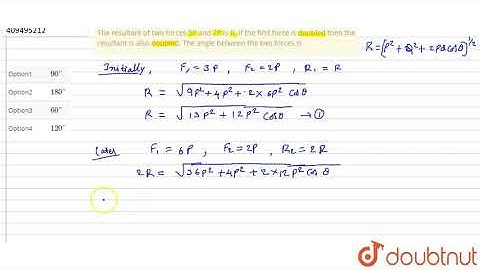 409495212
The resultant of two forces 3P and 2P is R, if the first force is doubled then the
resultant is also doubled. The angle between the two forces is
R = [P² + Q² + 2PQ cosθ]^1/2
Option1 90°
Option2 180°
Option3 60°
Option4 120°
Initially, F₁ = 3P , F₂ = 2P , R₁ = R
R = √9P² + 4P² + 2 x 6P² cosθ
R = √13P² + 12P² cosθ → ①
Later F₁ = 6P , F₂ = 2P , R₂ = 2R
2R = √36P² + 4P² + 2 x 12P² cos θ
doubtnut